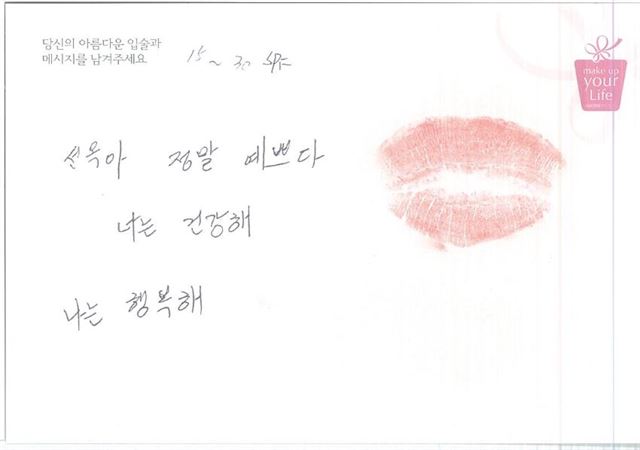 당신의 아름다운 입술과
메시지를 남겨주세요
15~30 SPF
make up
your
Life
선옥아 정말 예쁘다
너는 건강해
나는 행복해